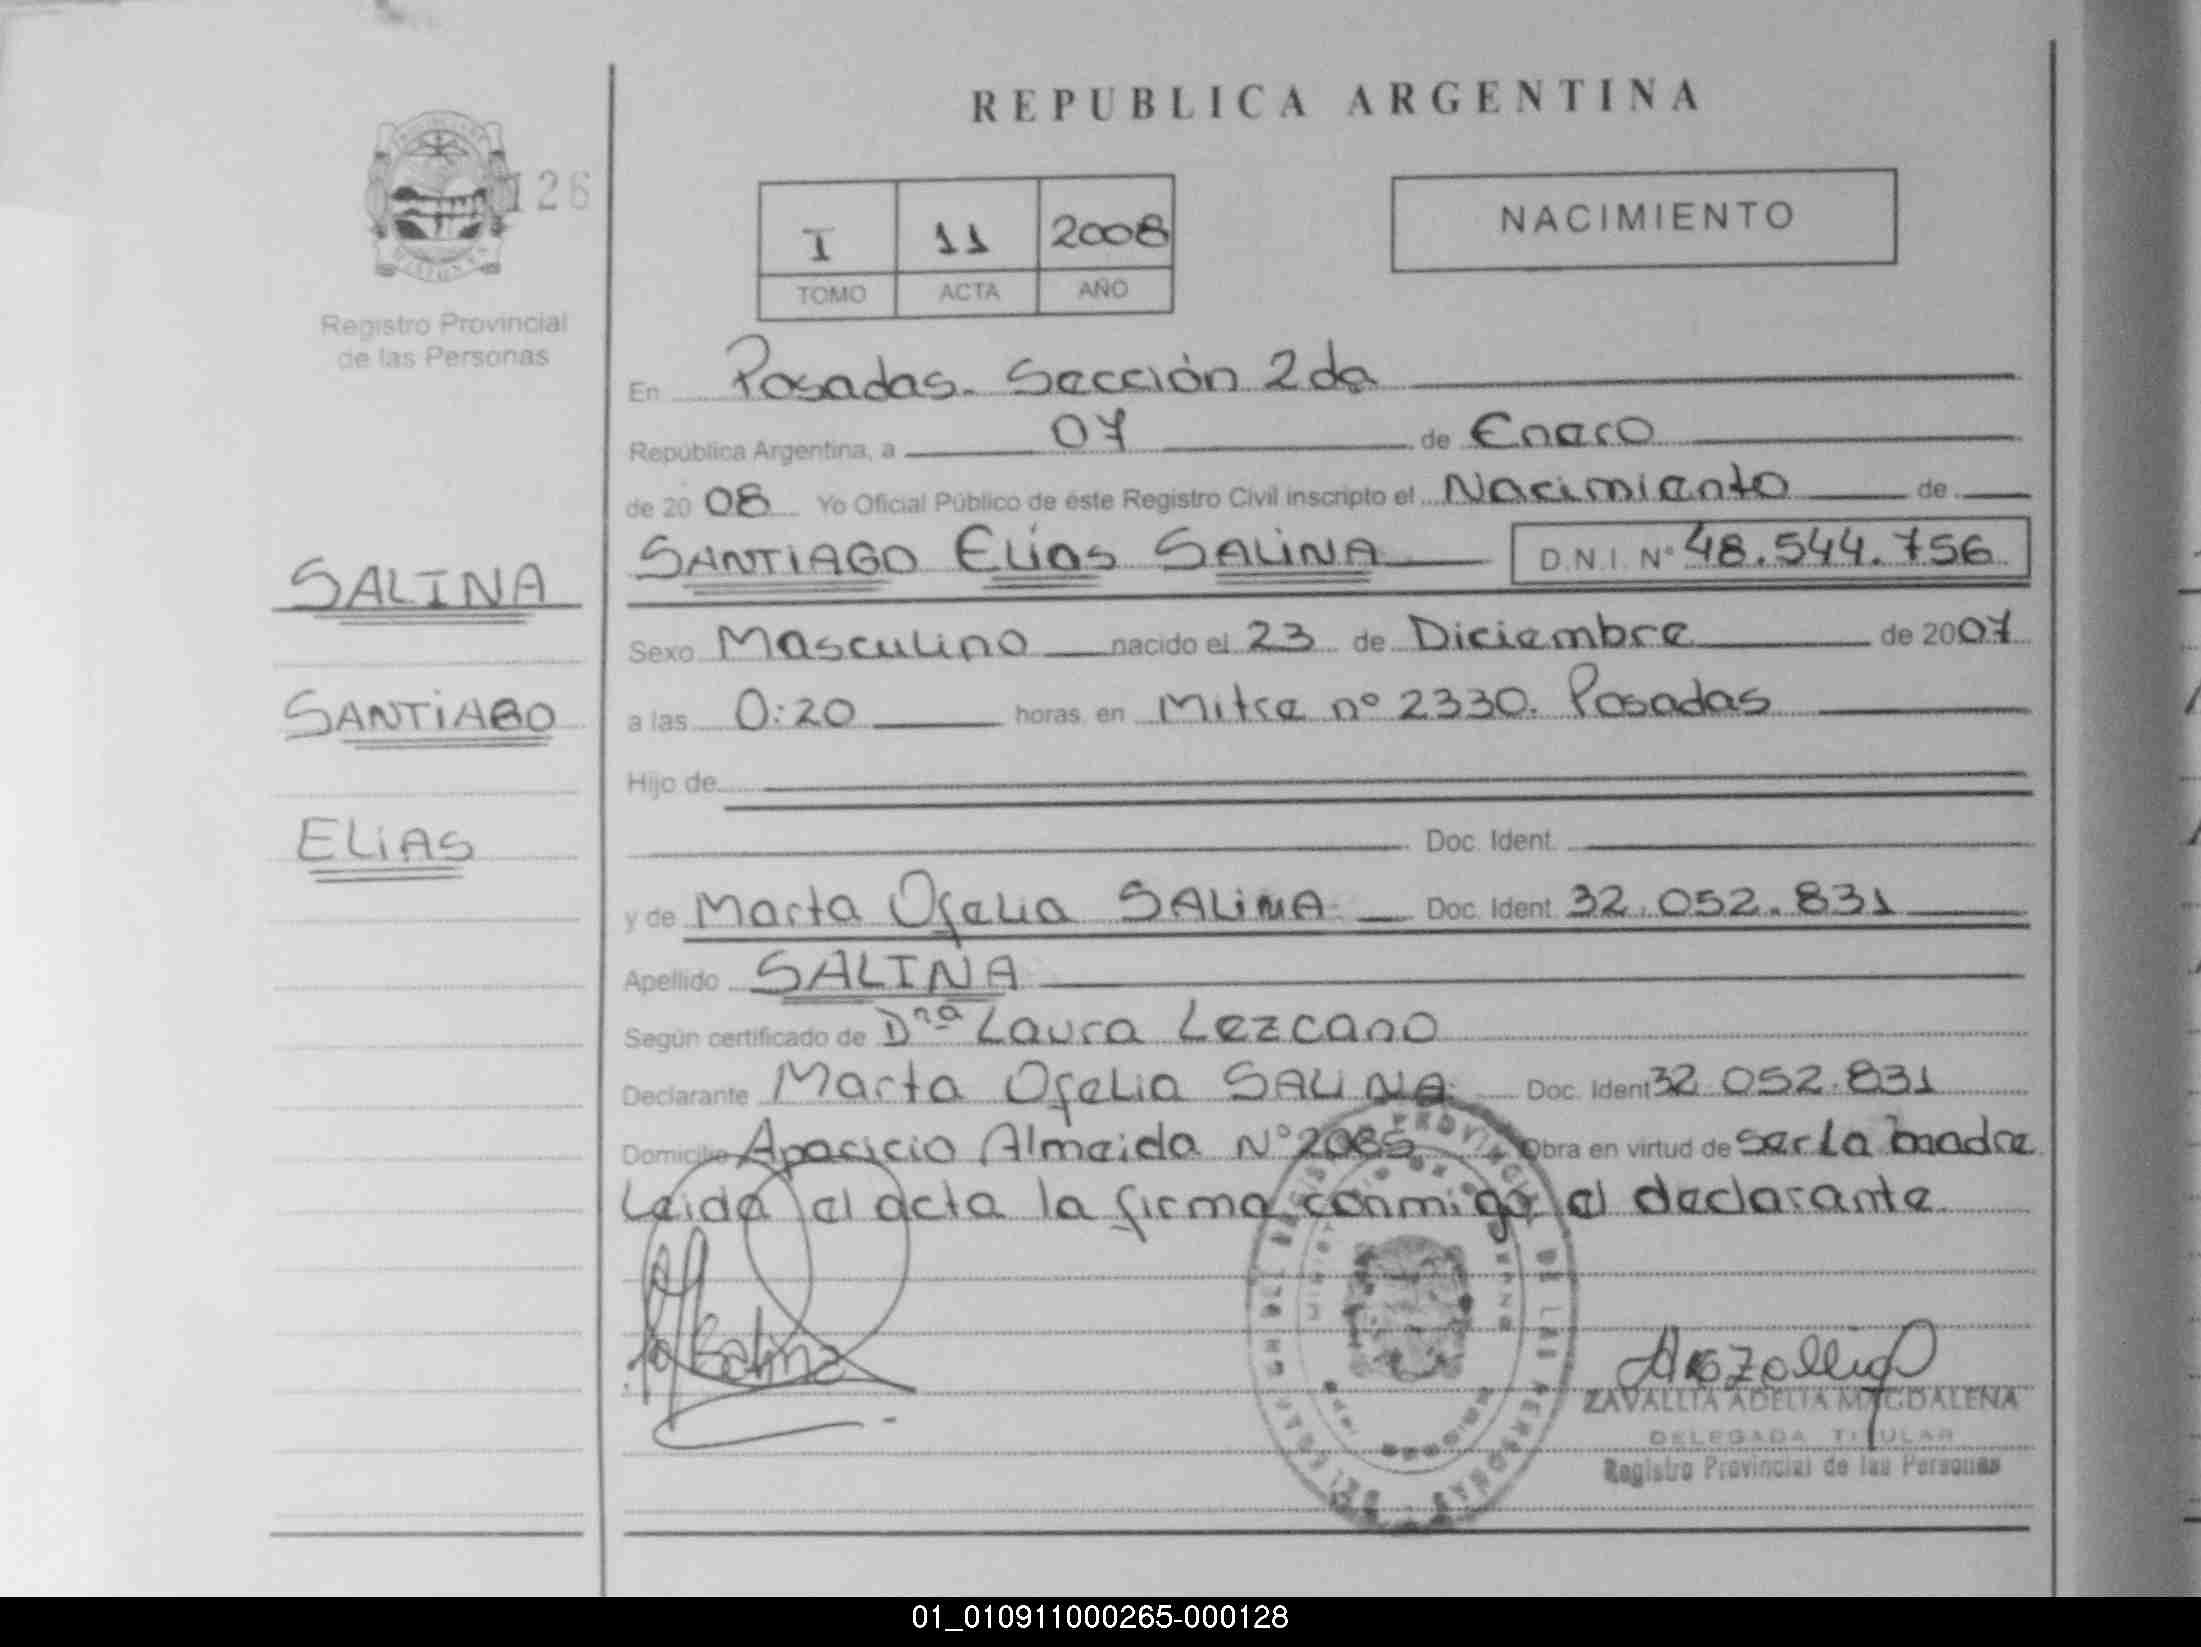 REPUBLICA ARGENTINA
126
Registro Provincial
de las Personas
I 11 2008
TOMO ACTA AÑO
NACIMIENTO
En Posadas. Sección 2da
República Argentina, a 07 de Enero
de 2008 Yo Oficial Público de éste Registro Civil inscripto el Nacimiento de
SANTIAGO Elías SALINA D.N.I. Nº 48.544.756
SALINA
SANTIAGO
ELIAS
Sexo Masculino nacido el 23 de Diciembre de 2007
a las 0:20 horas en Mitre nº 2330. Posadas
Hijo de
Doc. Ident.
y de Marta Ofelia SALINA Doc. Ident. 32.052.831
Apellido SALINA
Según certificado de Drª Laura Lezcano
Declarante Marta Ofelia SALINA Doc. Ident 32.052.831
Domicilio Aparicio Almeida Nº 2085 Obra en virtud de ser la madre
Leida el acta la firma conmigo el declarante
Salina
PROVINCIAL DE LAS PERSONAS
ZAVALLIA ADELIA MAGDALENA
DELEGADA TITULAR
Registro Provincial de las Personas
01_010911000265-000128